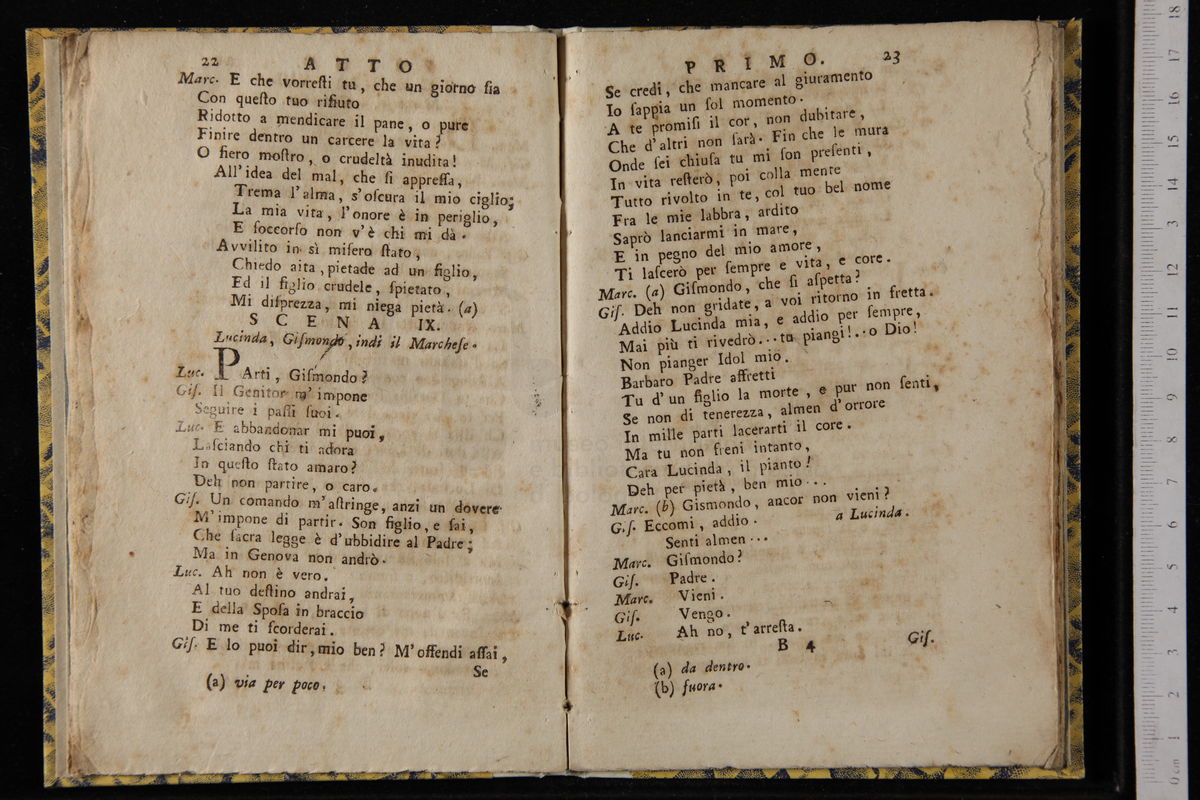 22
A T T O
Marc. E che vorreſti tu, che un giorno ſia
Con queſto tuo rifiuto
Ridotto a mendicare il pane, o pure
Finire dentro un carcere la vita?
O fiero moſtro, o crudeltà inudita!
All'idea del mal, che ſi appreſſa,
Trema l'alma, s'oſcura il mio ciglio;
La mia vita, l'onore è in periglio,
E ſoccorſo non v'è chi mi dà.
Avvilito in sì miſero ſtato,
Chiedo aita, pietade ad un figlio,
Ed il figlio crudele, ſpietato,
Mi diſprezza, mi niega pietà. (a)
S C E N A IX.
Lucinda, Giſmondo, indi il Marcheſe.
Luc. PArti, Giſmondo?
Giſ. Il Genitor m'impone
Seguire i paſſi ſuoi.
Luc. E abbandonar mi puoi,
Laſciando chi ti adora
In queſto ſtato amaro?
Deh non partire, o caro.
Giſ. Un comando m'aſtringe, anzi un dovere
M'impone di partir. Son figlio, e ſai,
Che ſacra legge è d'ubbidire al Padre;
Ma in Genova non andrò.
Luc. Ah non è vero.
Al tuo deſtino andrai,
E della Spoſa in braccio
Di me ti ſcorderai.
Giſ. E lo puoi dir, mio ben? M'offendi aſſai,
Se
(a) via per poco.
P R I M O.
23
Se credi, che mancare al giuramento
Io ſappia un ſol momento.
A te promiſi il cor, non dubitare,
Che d'altri non ſarà. Fin che le mura
Onde ſei chiuſa tu mi ſon preſenti,
In vita reſterò, poi colla mente
Tutto rivolto in te, col tuo bel nome
Fra le mie labbra, ardito
Saprò lanciarmi in mare,
E in pegno del mio amore,
Ti laſcerò per ſempre e vita, e core.
Marc. (a) Giſmondo, che ſi aſpetta?
Giſ. Deh non gridate, a voi ritorno in fretta.
Addio Lucinda mia, e addio per ſempre,
Mai più ti rivedrò... tu piangi!.. o Dio!
Non pianger Idol mio.
Barbaro Padre affretti
Tu d'un figlio la morte, e pur non ſenti,
Se non di tenerezza, almen d'orrore
In mille parti lacerarti il core.
Ma tu non freni intanto,
Cara Lucinda, il pianto!
Deh per pietà, ben mio...
Marc. (b) Gismondo, ancor non vieni?
G.ſ. Eccomi, addio. a Lucinda.
Senti almen...
Marc. Giſmondo?
Giſ. Padre.
Marc. Vieni.
Giſ. Vengo.
Luc. Ah no, t'arreſta.
B 4
Giſ.
(a) da dentro.
(b) fuora.
0 cm 1 2 3 4 5 6 7 8 9 10 11 12 13 14 15 16 17 18